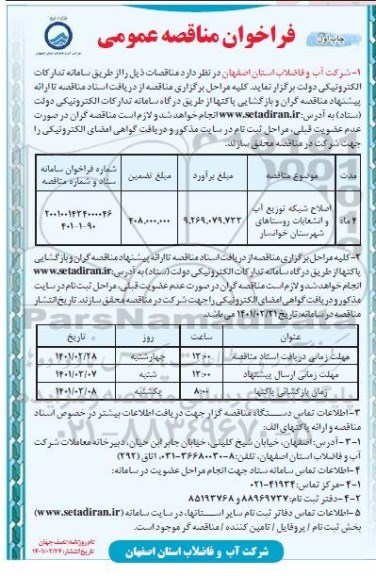 وزارت نیرو
شرکت آب و فاضلاب استان اصفهان
فراخوان مناقصه عمومی
چاپ اول
۱- شرکت آب و فاضلاب استان اصفهان در نظر دارد مناقصات ذیل را از طریق سامانه تدارکات
الکترونیکی دولت برگزار نماید. کلیه مراحل برگزاری مناقصه از دریافت اسناد مناقصه تا ارائه
پیشنهاد مناقصه گران و بازگشایی پاکتها از طریق درگاه سامانه تدارکات الکترونیکی دولت
(ستاد) به آدرس: www.setadiran.ir انجام خواهد شد و لازم است مناقصه گران در صورت
عدم عضویت قبلی، مراحل ثبت نام در سایت مذکور و دریافت گواهی امضای الکترونیکی را
جهت شرکت در مناقصه محقق سازند.
مدت موضوع مناقصه مبلغ برآورد مبلغ تضمین شماره فراخوان سامانه ستاد و شماره مناقصه
۴ ماه اصلاح شبکه توزیع آب و انشعابات روستاهای شهرستان خوانسار ۹,۲۶۹,۰۷۹,۷۲۲ ۴۰۸,۰۰۰,۰۰۰ ۲۰۰۱۰۰۱۴۳۴۰۰۰۰۴۶
۴۰۱-۱-۹۰
۲- کلیه مراحل برگزاری مناقصه از دریافت اسناد مناقصه تا ارائه پیشنهاد مناقصه گران و بازگشایی
پاکتها از طریق درگاه سامانه تدارکات الکترونیکی دولت (ستاد) به آدرس: www.setadiran.ir
انجام خواهد شد و لازم است مناقصه گران در صورت عدم عضویت قبلی، مراحل ثبت نام در سایت
مذکور و دریافت گواهی امضای الکترونیکی را جهت شرکت در مناقصه محقق سازند. تاریخ انتشار
مناقصه در سامانه: تاریخ ۱۴۰۱/۰۲/۲۱ می باشد.
عنوان ساعت روز تاریخ
مهلت زمانی دریافت اسناد مناقصه ۱۳:۰۰ چهارشنبه ۱۴۰۱/۰۲/۲۸
مهلت زمانی ارسال پیشنهاد ۱۳:۰۰ شنبه ۱۴۰۱/۰۳/۰۷
زمان بازگشائی پاکتها ۸:۰۰ یکشنبه ۱۴۰۱/۰۳/۰۸
۳- اطلاعات تماس دستگاه مناقصه گزار جهت دریافت اطلاعات بیشتر در خصوص اسناد
مناقصه و ارائه پاکتهای الف:
۳-۱- آدرس: اصفهان، خیابان شیخ کلینی، خیابان جابر ابن حیان، دبیرخانه معاملات شرکت
آب و فاضلاب استان اصفهان، تلفن: ۸-۳۶۶۸۰۰۳۰-۰۳۱، اتاق (۲۹۲)
۴- اطلاعات تماس سامانه ستاد جهت انجام مراحل عضویت در سامانه:
۴-۱- مرکز تماس: ۴۱۹۳۴-۰۲۱
۴-۲- دفتر ثبت نام: ۸۸۹۶۹۷۳۷ و ۸۵۱۹۳۷۶۸
۵- اطلاعات تماس دفاتر ثبت نام سایر استانها، در سایت سامانه (www.setadiran.ir)
بخش ثبت نام / پروفایل / تامین کننده / مناقصه گر موجود است.
نام روزنامه: نصف جهان
تاریخ انتشار: ۱۴۰۱/۰۲/۲۴
شرکت آب و فاضلاب استان اصفهان